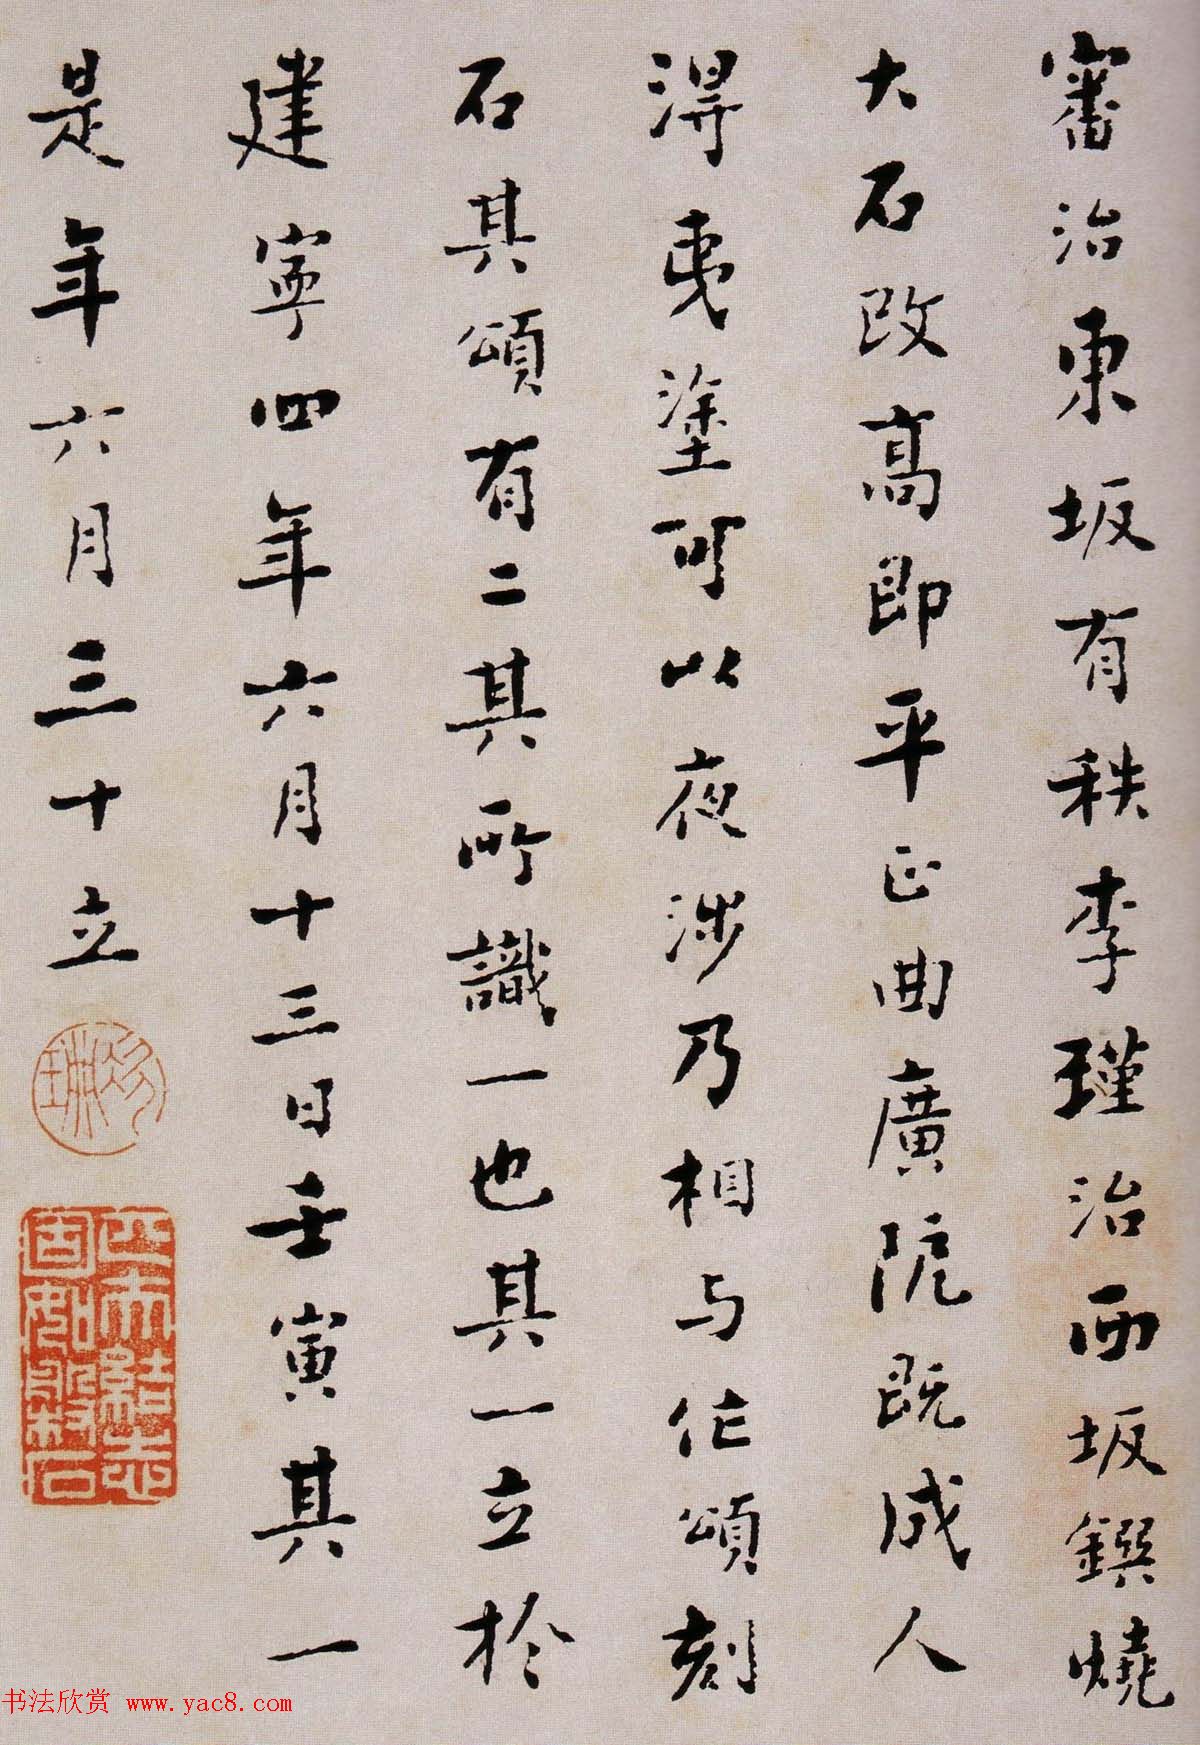 審治東坂有秩李瑾治西坂鐉燒
大石改高即平正曲廣阨既成人
得夷塗可以夜涉乃相与作頌刻
石其頌有二其所識一也其一立於
建寧四年六月十三日壬寅其一
是年六月三十立
书法欣赏 www.yac8.com